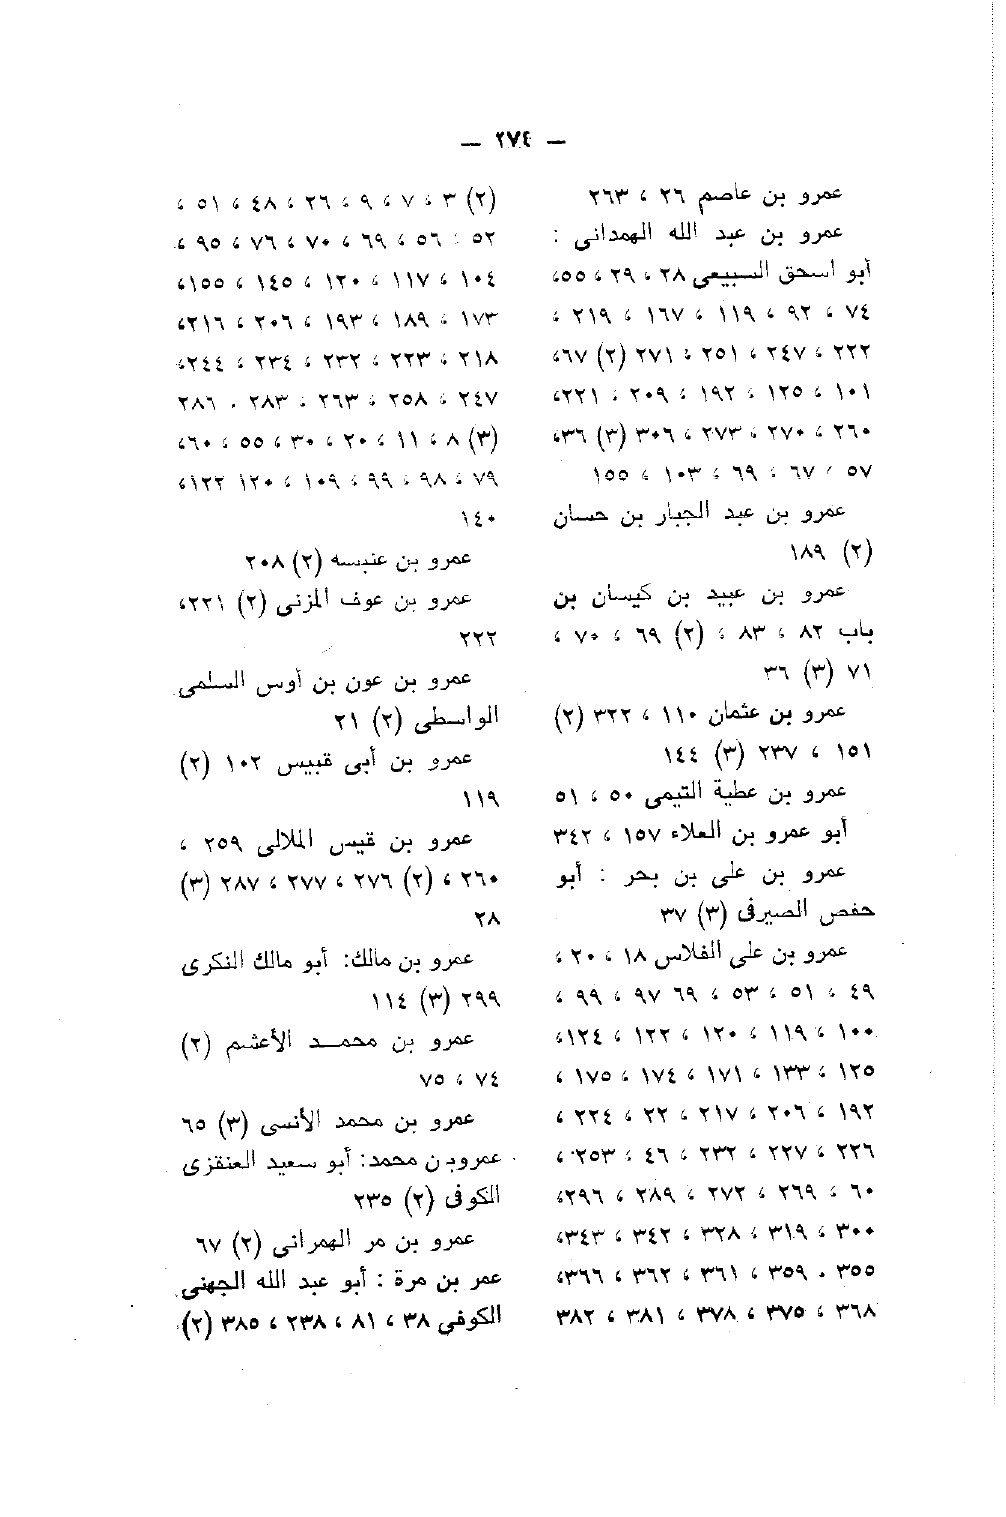 — ٢٧٤ —
عمرو بن عاصم ٢٦ ، ٢٦٣
عمرو بن عبد الله الهمدانى :
أبو اسحق السبيعى ٢٨ ، ٢٩ ، ٥٥،
٧٤ ، ٩٢ ، ١١٩ ، ١٦٧ ، ٢١٩ ،
٢٢٢ ، ٢٤٧ ، ٢٥١ ، ٢٧١ (٢) ٦٧،
١٠١ ، ١٢٥ ، ١٩٢ ، ٢٠٩ ، ٢٢١،
٢٦٠ ، ٢٧٠ ، ٢٧٣ ، ٣٠٦ (٣) ٣٦،
٥٧ ، ٦٧ ، ٦٩ ، ١٠٣ ، ١٥٥
عمرو بن عبد الجبار بن حسان
(٢) ١٨٩
عمرو بن عبيد بن كيسان بن
باب ٨٢ ، ٨٣ ، (٢) ٦٩ ، ٧٠ ،
٧١ (٣) ٣٦
عمرو بن عثمان ١١٠ ، ٣٢٢ (٢)
١٥١ ، ٢٣٧ (٣) ١٤٤
عمرو بن عطية التيمى ٥٠ ، ٥١
أبو عمرو بن العلاء ١٥٧ ، ٣٤٢
عمرو بن على بن بحر : أبو
حفص الصيرفى (٣) ٣٧
عمرو بن على الفلاس ١٨ ، ٢٠ ،
٤٩ ، ٥١ ، ٥٣ ، ٦٩ ٩٧ ، ٩٩ ،
١٠٠ ، ١١٩ ، ١٢٠ ، ١٢٢ ، ١٢٤،
١٢٥ ، ١٣٣ ، ١٧١ ، ١٧٤ ، ١٧٥ ،
١٩٢ ، ٢٠٦ ، ٢١٧ ، ٢٢ ، ٢٢٤ ،
٢٢٦ ، ٢٢٧ ، ٢٣٢ ، ٤٦ ، ٢٥٣ ،
٦٠ ، ٢٦٩ ، ٢٧٢ ، ٢٨٩ ، ٢٩٦،
٣٠٠ ، ٣١٩ ، ٣٢٨ ، ٣٤٢ ، ٣٤٣،
٣٥٥ . ٣٥٩ ، ٣٦١ ، ٣٦٢ ، ٣٦٦،
٣٦٨ ، ٣٧٥ ، ٣٧٨ ، ٣٨١ ، ٣٨٢
(٢) ٣ ، ٧ ، ٩ ، ٢٦ ، ٤٨ ، ٥١ ،
٥٢ : ٥٦ ، ٦٩ ، ٧٠ ، ٧٦ ، ٩٥ ،
١٠٤ ، ١١٧ ، ١٢٠ ، ١٤٥ ، ١٥٥،
١٧٣ ، ١٨٩ ، ١٩٣ ، ٢٠٦ ، ٢١٦،
٢١٨ ، ٢٢٣ ، ٢٣٢ ، ٢٣٤ ، ٢٤٤،
٢٤٧ ، ٢٥٨ ، ٢٦٣ ، ٢٨٣ . ٢٨٦
(٣) ٨ ، ١١ ، ٢٠ ، ٣٠ ، ٥٥ ، ٦٠،
٧٩ ، ٩٨ ، ٩٩ ، ١٠٩ ، ١٢٠ ١٢٢،
١٤٠
عمرو بن عنبسه (٢) ٢٠٨
عمرو بن عوف المزنى (٢) ٢٢١،
٢٢٢
عمرو بن عون بن أوس السلمى
الواسطى (٢) ٢١
عمرو بن أبى قبيس ١٠٢ (٢)
١١٩
عمرو بن قيس الملالى ٢٥٩ ،
٢٦٠ ، (٢) ٢٧٦ ، ٢٧٧ ، ٢٨٧ (٣)
٢٨
عمرو بن مالك: أبو مالك النكرى
٢٩٩ (٣) ١١٤
عمرو بن محمد الأعثم (٢)
٧٤ ، ٧٥
عمرو بن محمد الأنسى (٣) ٦٥
عمروبن محمد: أبو سعيد العنقزى
الكوفى (٢) ٢٣٥
عمرو بن مر الهمرانى (٢) ٦٧
عمر بن مرة : أبو عبد الله الجهنى
الكوفى ٣٨ ، ٨١ ، ٢٣٨ ، ٣٨٥ (٢)